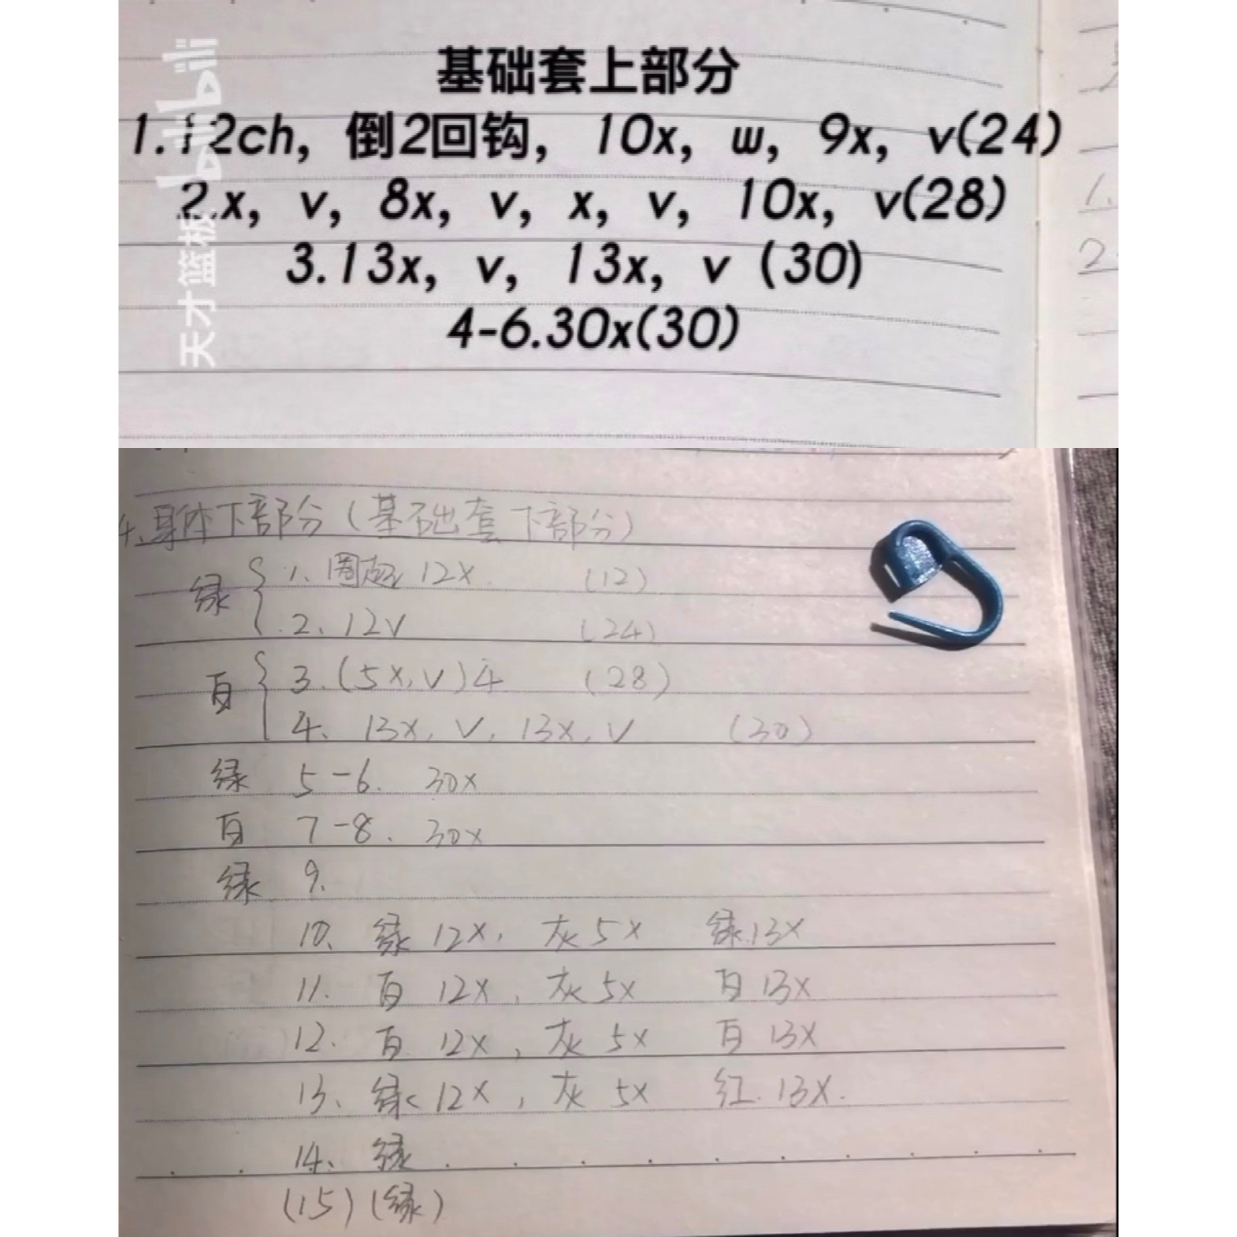 基础套上部分
1.12ch，倒2回钩，10x，w，9x，v(24)
2.x，v，8x，v，x，v，10x，v(28)
3.13x，v，13x，v（30)
4-6.30x(30)
天才篮板 bilibili
1.
2
4、身体下部分（基础套下部分）
绿 1、圈起 12x (12)
2、12v (24)
白 3.(5x,v)4 (28)
4、13x, v, 13x, v (30)
绿 5-6. 30x
白 7-8. 30x
绿 9.
10、绿 12x, 灰 5x 绿 13x
11. 白 12x, 灰 5x 白 13x
12. 白 12x, 灰 5x 白 13x
13、绿 12x, 灰 5x 红. 13x.
14、绿
(15) (绿)